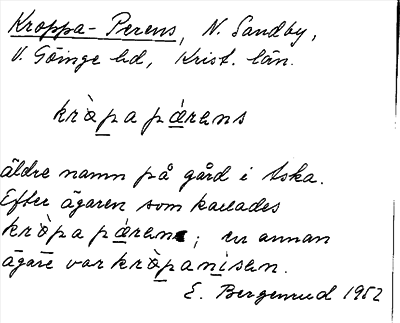 Kroppa-Perens, N. Sandby,
V. Göinge hd, Krist. län.
krò̱pa pæ̱rens
äldre namn på gård i Aska.
Efter ägaren som kallades
krò̱pa pæ̱ren; en annan
ägare var krò̱pani̱sen.
E. Bergenrud 1952